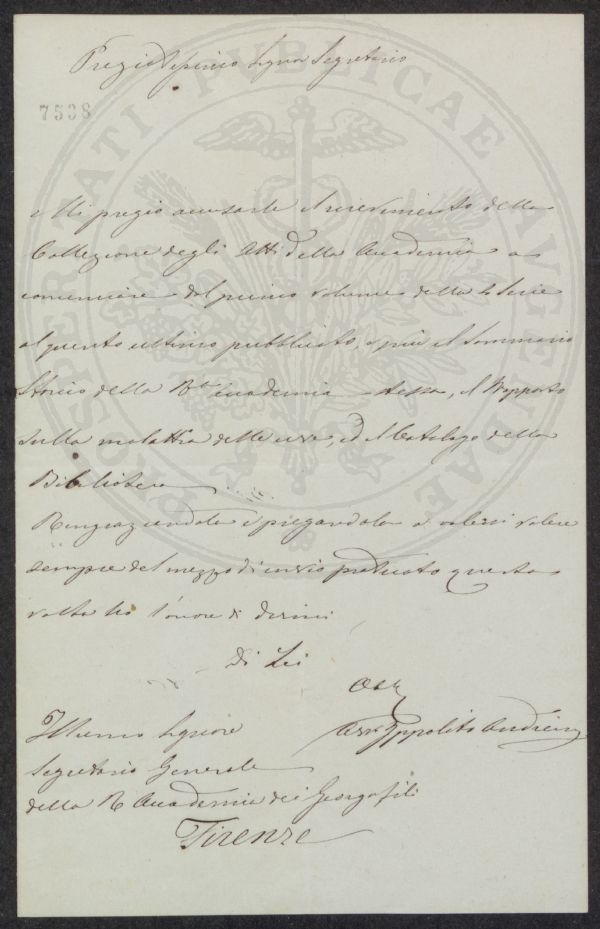 Pregiatissimo Signor Segretario
7538
Mi pregio accusarle il ricevimento della
Collezione degli Atti della Accademia a
cominciare dal primo volume della 2 Serie
al quinto ultimo pubblicato, e più il Sommario
Storico della R. Accademia stessa, il Rapporto
sulla malattia delle uve, ed il Catalogo della
Biblioteca
Ringraziandola e pregandola a valersi
sempre del mezzo di invio praticato questa
volta ho l'onore di dirmi
Di Lei
Ippolito
Illmo Signore
Segretario Generale
della R Accademia dei Georgofili
Firenze
PROSPERITATI PUBLICAE AUGENDAE